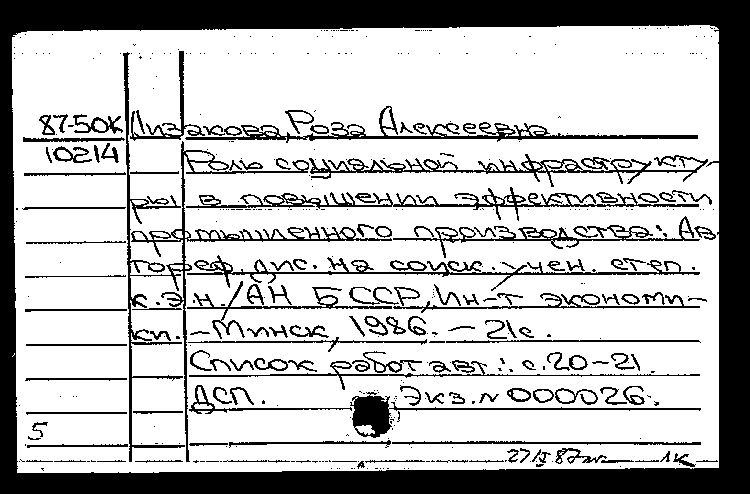 87-50К Лизакова, Роза Алексеевна
10214 Роль социальной инфраструкту-
ры в повышении эффективности
промышленного производства: Ав-
тореф. дис. на соиск. учен. степ.
к.э.н. / АН БССР, Ин-т экономи-
ки. - Минск, 1986. - 21с.
Список работ авт.: с.20-21.
ДСП. Экз. N 000026.
5